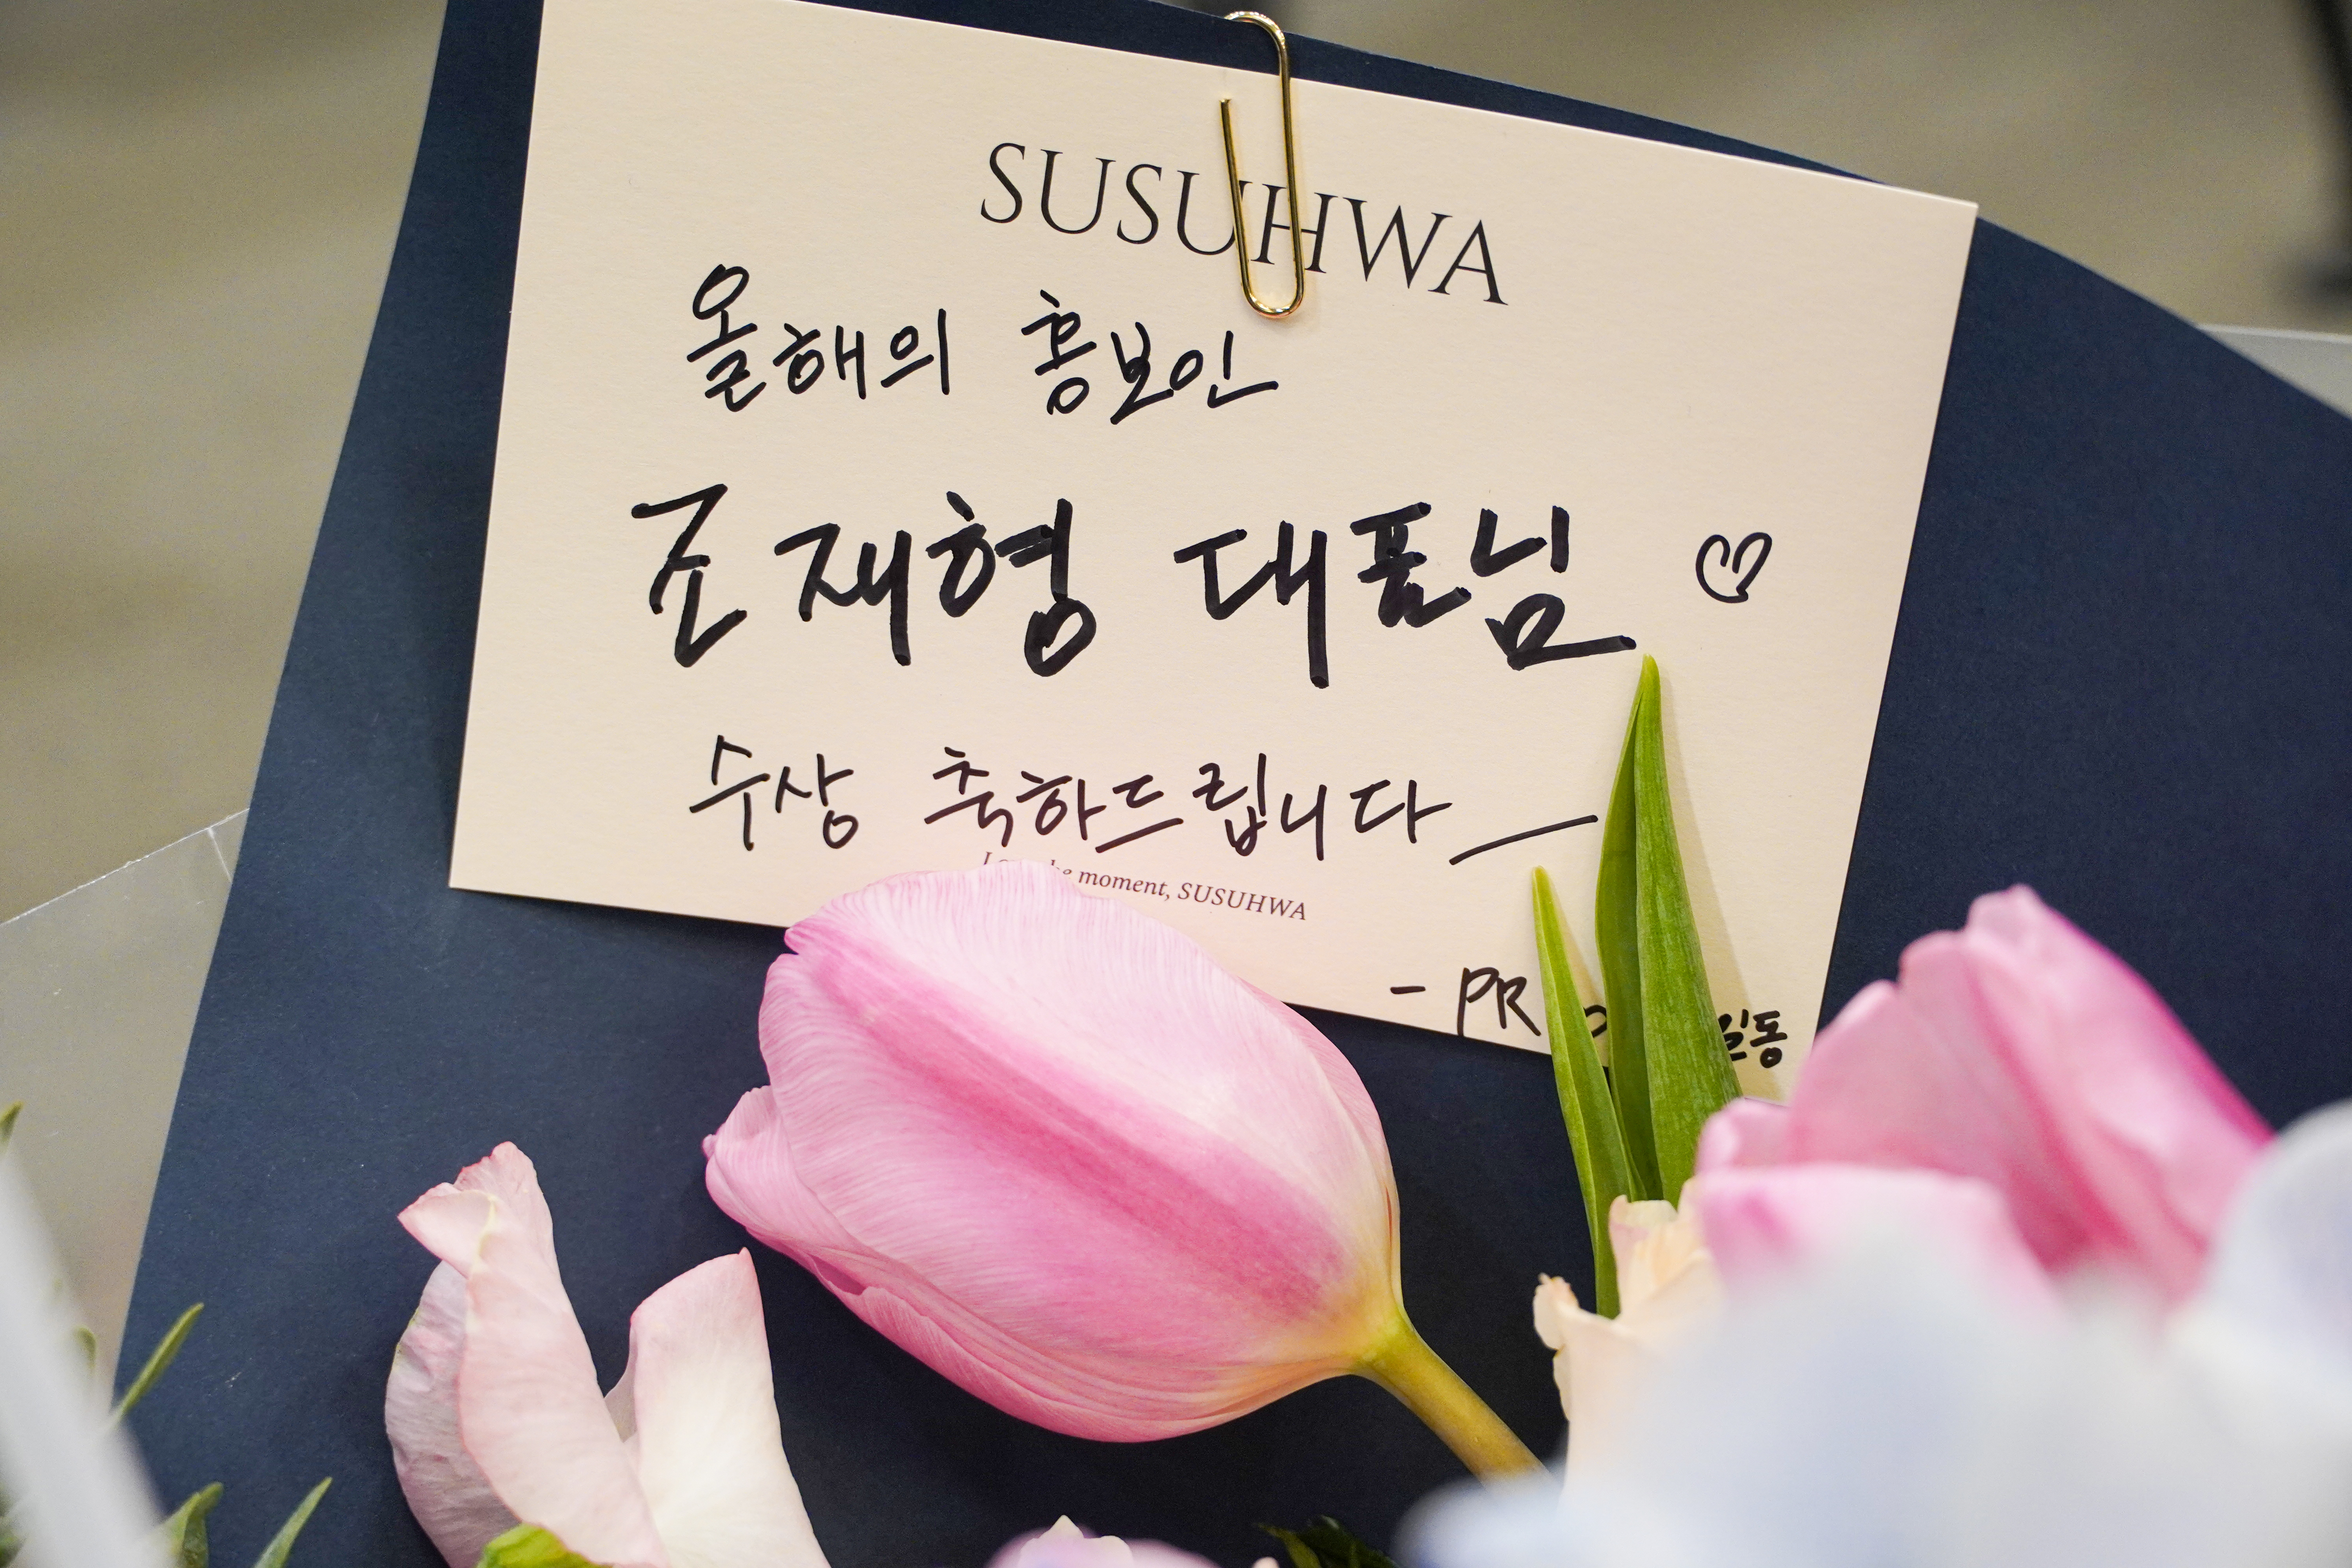 SUSUHWA
올해의 홍보인
조재형 대표님
수상 축하드립니다
moment, SUSUHWA
- PR